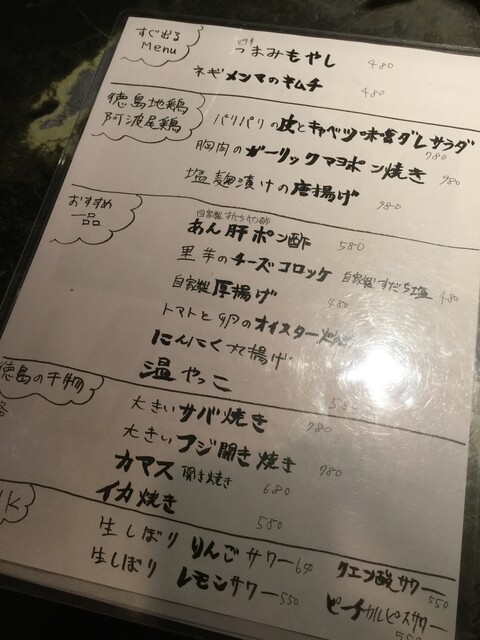 すぐ出る
Menu
つまみもやし 480
ネギメンマのキムチ 480
徳島地鶏
阿波尾鶏
パリパリの皮とキャベツ味噌ダレサラダ 780
胸肉のガーリックマヨポン焼き 980
塩麹漬けの唐揚げ 980
おすすめ
一品
自家製すだちポン酢
あん肝ポン酢 580
里芋のチーズコロッケ 自家製すだち塩 480
自家製厚揚げ 480
トマトと卵のオイスター炒め
にんにく丸揚げ
温やっこ 580
徳島の干物
大きいサバ焼き 780
大きいアジ開き焼き 780
カマス開き焼き 680
イカ焼き 580
生しぼりりんごサワー 650
クエン酸サワー 550
生しぼりレモンサワー 550
ピーチカルピスサワー